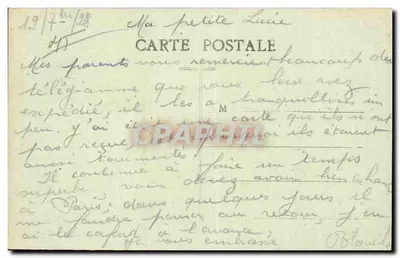 19/7bre/28
Ma petite Lucie
CARTE POSTALE
Mes parents vous remercient beaucoup du
télégramme que vous leur avez
expédié, il les a tranquillisés un
M
peu, j'ai écrit une carte qu'ils n'ont
CPARAMA
pas reçue ils étaient
aussi tourmentés
Il continue à faire un temps
superbe, vous devez avoir bien chaud
à Paris, dans quelques jours, il
me faudra penser au retour, j'en
ai le cafard à l'avance,
Je vous embrasse
Blanche